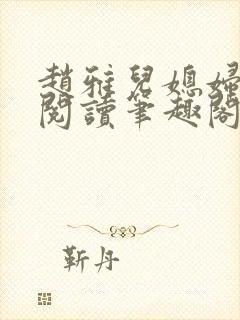 趙雅兒媳婦
閱讀筆趣閣
靳丹